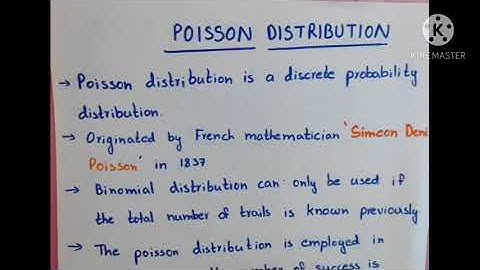 POISSON DISTRIBUTION
K
KINEMASTER
→ Poisson distribution is a discrete probability
distribution.
→ Originated by French mathematician 'Simeon Deni
Poisson' in 1837
→ Binomial distribution can only be used if
the total number of trails is known previously
→ The poisson distribution is employed in
number of success is